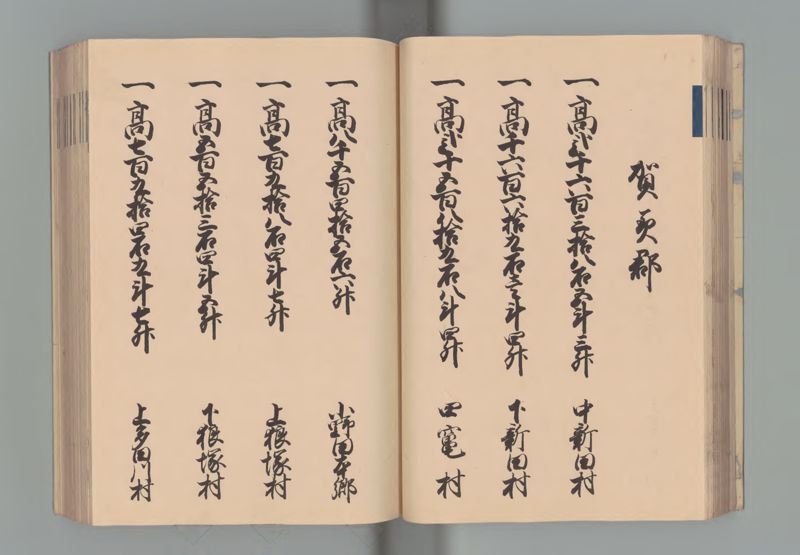 賀美郡
一高弐千六百三拾八石五斗三升 中新田村
一高千六百六拾九石壱斗四升 下新田村
一高弐千五百八拾九石八斗四升 四竃村
一高八千五百四拾五石六升 小野田本郷
一高七百九拾八石四斗七升 上狼塚村
一高五百五拾三石四斗五升 下狼塚村
一高七百九拾四石九斗七升 上多田川村